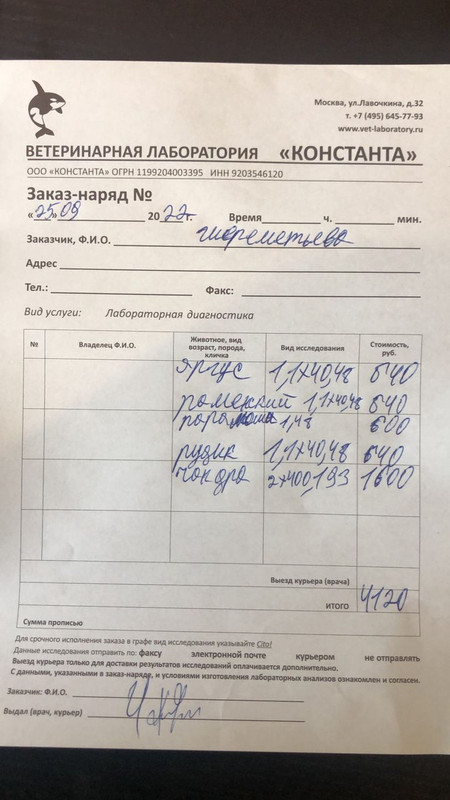 Москва, ул.Лавочкина, д.32
т. +7 (495) 645-77-93
www.vet-laboratory.ru
ВЕТЕРИНАРНАЯ ЛАБОРАТОРИЯ «КОНСТАНТА»
ООО «КОНСТАНТА» ОГРН 1199204003395 ИНН 9203546120
Заказ-наряд №
«25» 09 2022г. Время ч. мин.
Заказчик, Ф.И.О. шереметьева
Адрес
Тел.: Факс:
Вид услуги: Лабораторная диагностика
№ Владелец Ф.И.О. Животное, вид возраст, порода, кличка Вид исследования Стоимость, руб.
яргус 1,1х40,48 640
раменский 1,1х40,48 640
1,48 600
рудик 1,1х40,48 640
чандра 2х400,193 1600
Выезд курьера (врача)
ИТОГО 4120
Сумма прописью
Для срочного исполнения заказа в графе вид исследования указывайте Cito!
Данные исследования отправить по: факсу электронной почте курьером не отправлять
Выезд курьера только для доставки результатов исследований оплачивается дополнительно.
С данными, указанными в заказ-наряде, и условиями изготовления лабораторных анализов ознакомлен и согласен.
Заказчик: Ф.И.О.
Выдал (врач, курьер)